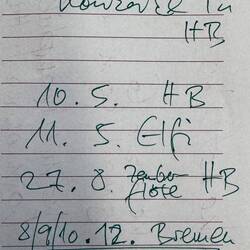 Konzerte in
HB
10. 5. HB
11. 5. Elfi
27. 8. Zauberflöte HB
8/9/10. 12. Bremen